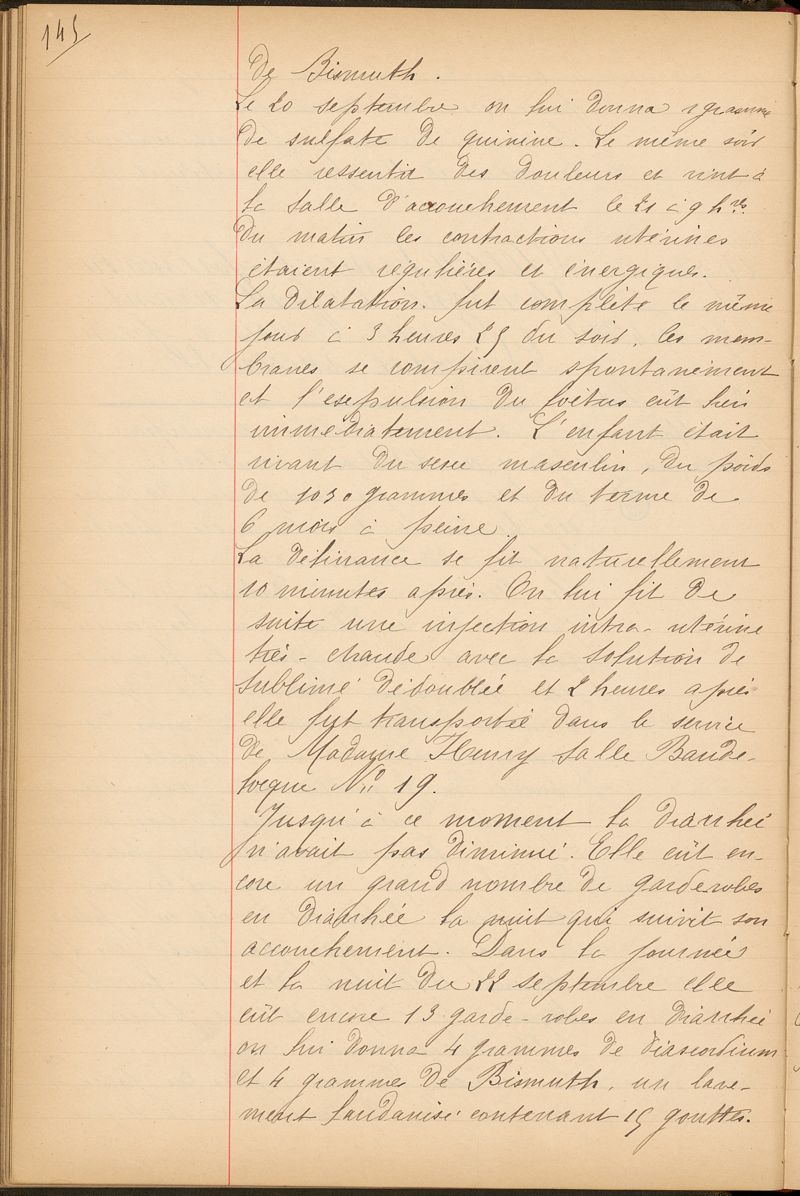 145
de Bismuth.
Le 20 septembre on lui donna 1 gramme
de sulfate de quinine. Le même soir
elle ressentit des douleurs et vint à
la salle d'accouchement le 21 à 9 hres
du matin les contractions utérines
étaient régulières et énergiques.
La dilatation fut complète le même
jour à 3 heures 25 du soir, les mem-
branes se rompirent spontanément
et l'expulsion du foetus eût lieu
immédiatement. L'enfant était
vivant du sexe masculin, du poids
de 1030 grammes et du terme de
6 mois à peine.
La délivrance se fit naturellement
10 minutes après. On lui fit de
suite une injection intra-utérine
très-chaude avec la solution de
sublimé dédoublée et 2 heures après
elle fut transportée dans le service
de Madame Henry salle Baude-
locque No 19.
Jusqu'à ce moment la diarrhée
n'avait pas diminué. Elle eût en-
core un grand nombre de garderobes
en diarrhée la nuit qui suivit son
accouchement. Dans la journée
et la nuit du 22 septembre elle
eût encore 13 garde-robes en diarrhée
on lui donna 4 grammes de diascordium
et 4 grammes de Bismuth, un lave-
ment laudanisé contenant 15 gouttes.